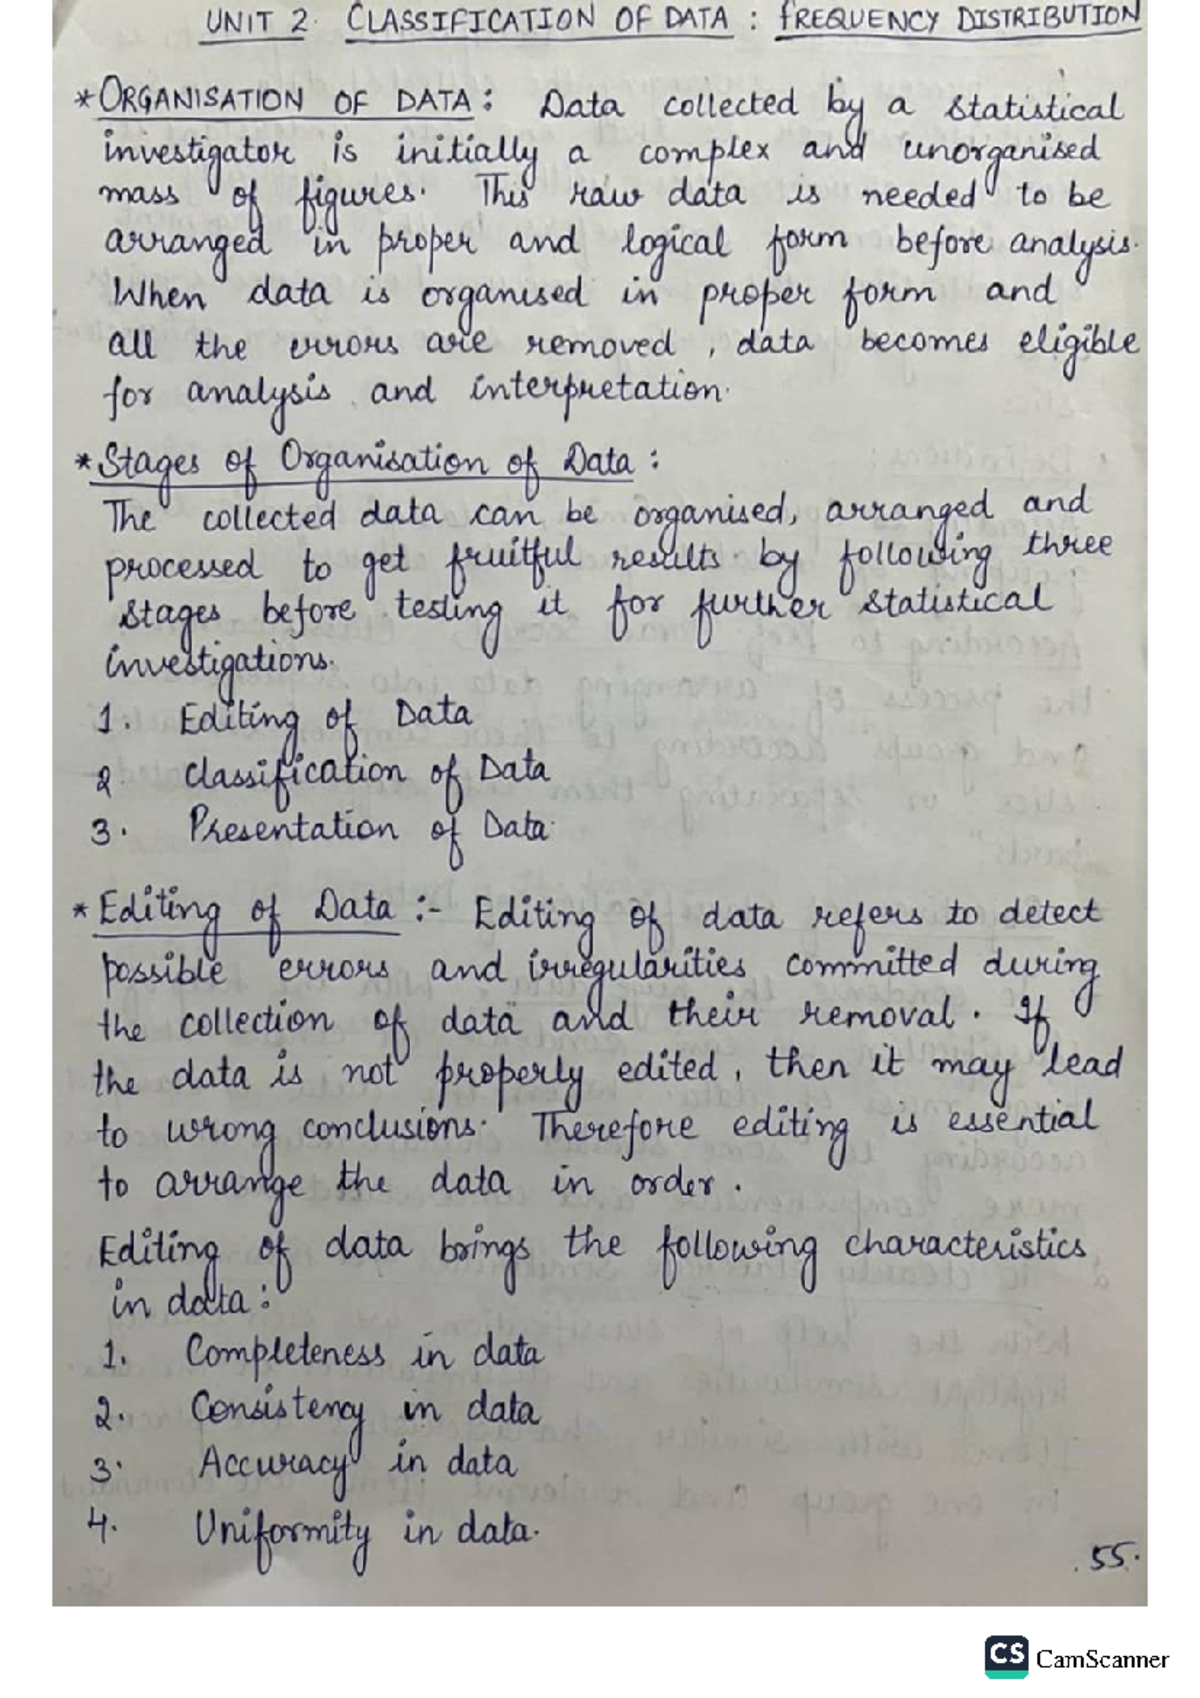 UNIT 2. CLASSIFICATION OF DATA : FREQUENCY DISTRIBUTION
* ORGANISATION OF DATA : Data collected by a statistical
investigator is initially a complex and unorganised
mass of figures. This raw data is needed to be
arranged in proper and logical form before analysis.
When data is organised in proper form and
all the errors are removed , data becomes eligible
for analysis and interpretation.
* Stages of Organisation of Data :
The collected data can be organised, arranged and
processed to get fruitful results by following three
stages before testing it for further statistical
investigations.
1. Editing of Data
2 Classification of Data
3. Presentation of Data.
* Editing of Data :- Editing of data refers to detect
possible errors and irregularities committed during
the collection of data and their removal. If
the data is not properly edited, then it may lead
to wrong conclusions. Therefore editing is essential
to arrange the data in order.
Editing of data brings the following characteristics
in data :
1. Completeness in data
2. Consistency in data
3. Accuracy in data
4. Uniformity in data.
.55.
CS CamScanner